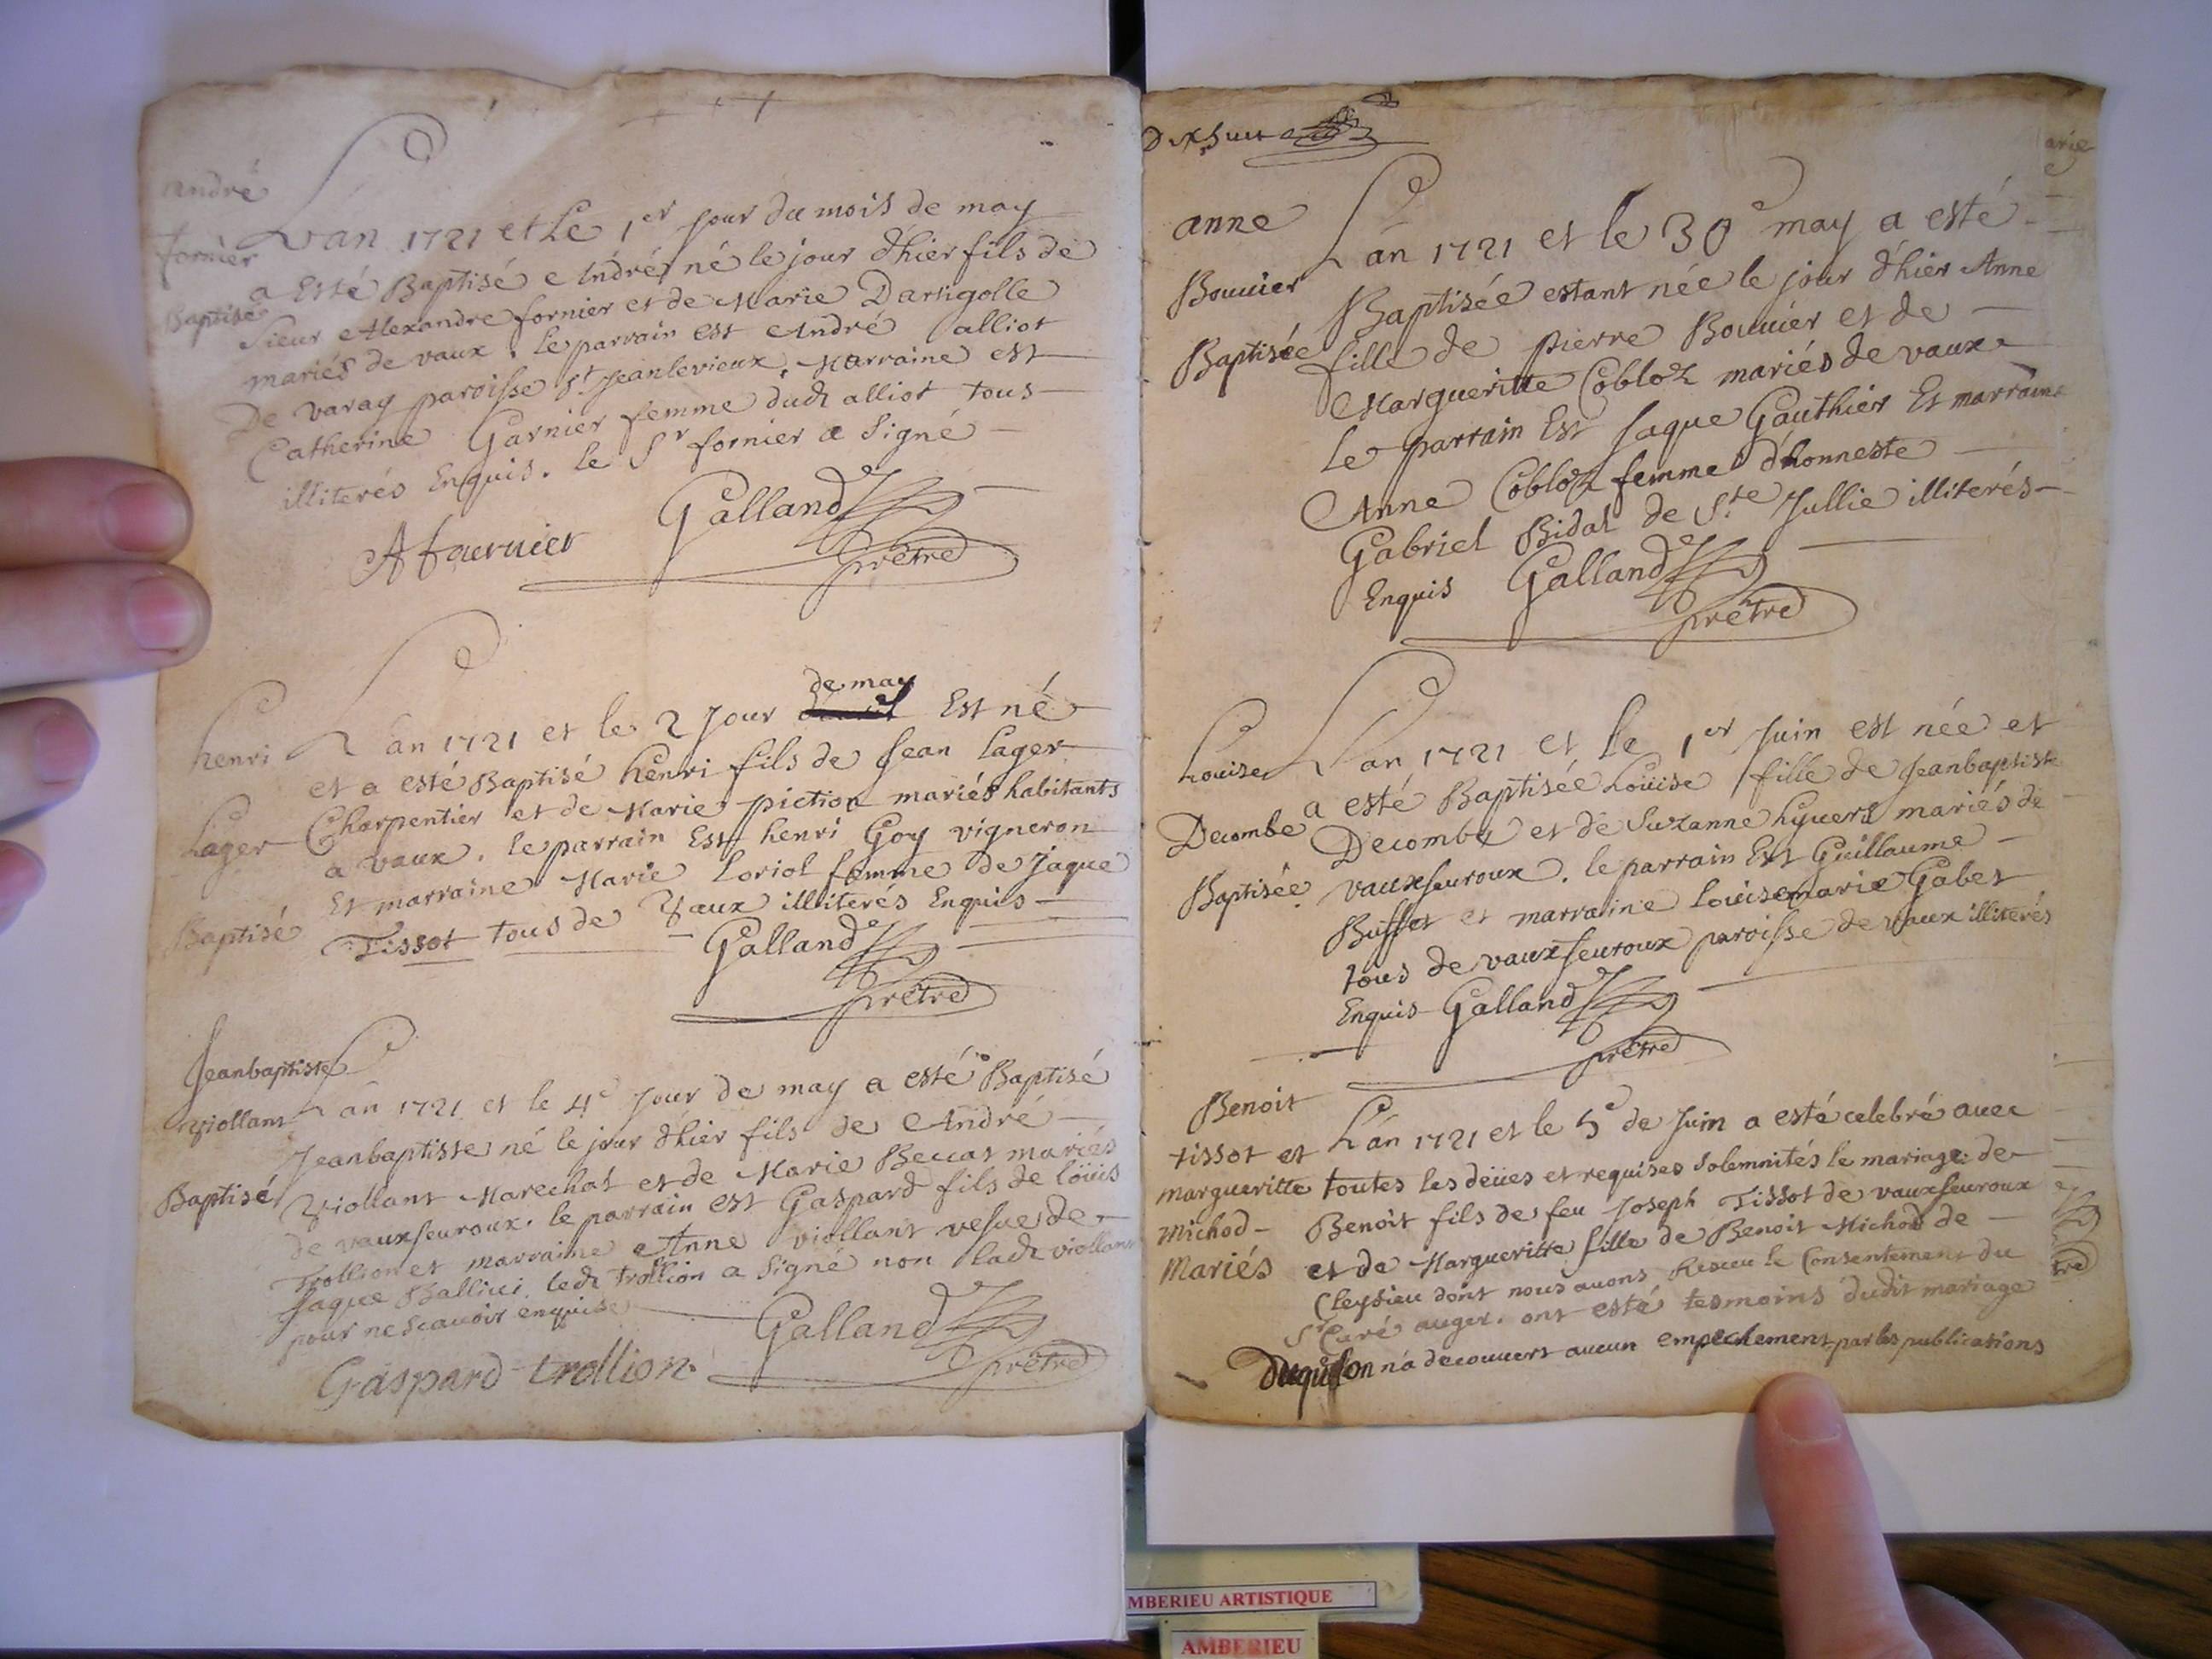 André
fornier
Baptisé
Lan 1721 et Le 1er Jour du mois de may
a Esté Baptisé André né le jour d'hier fils de
Sieur Alexandre fornier et de Marie Dartigolle
mariés de vaux. le parrain est André alliot
De varay paroisse St. Jeanlevieux. Marraine est
Catherine Garnier femme dudt alliot tous
illiterés Enquis. le Sr fornier a Signé
Galland
prêtre
Afournier
henri
Lager
Baptisé
de may
Lan 1721 et le 2 Jour Est né
et a esté Baptisé henri fils de Jean Lager
Charpentier et de Marie piction mariés habitants
a vaux. le parrain Est henri Goy vigneron
Et marraine Marie Loriol femme de Jaque
Tissot tous de Vaux illiterés Enquis
Galland
prêtre
Jeanbaptiste
Viollant
Baptisé
Lan 1721 et le 4e Jour de may a esté Baptisé
Jeanbaptiste né le jour d'hier fils de André
Viollant Marechal et de Marie Beccat mariés
de vauxfevroux. le parrain est Gaspard fils de loüis
Trollion et marraine Anne viollant vefue de
Jaque Ballivi. ledt trollion a Signé non ladt viollant
pour ne scauoir enquise
Galland
prêtre
Gaspard trollion
Dixhuit
anne
Bouuier
Baptisée
Lan 1721 et le 30e may a esté
Baptisée estant née le jour d'hier Anne
fille de pierre Bouuier et de
Margueritte Cobloz mariés de vaux
le parrain Est Jaque Gauthier Et marraine
Anne Cobloz femme d'honneste
Gabriel Bidal de Ste Jullie illiterés
Enquis Galland
prêtre
Loüise
Decombe
Baptisée
Lan 1721 et le 1er Juin est née et
a esté Baptisée Loüise fille de Jeanbaptiste
Decombe et de Suzanne mariés de
vauxfevroux. le parrain Est Guillaume
Buffet et marraine louisemarie Gabet
tous de vauxfevroux paroisse de vaux illiterés
Enquis Galland
prêtre
Benoit
tissot et
margueritte
Michod
Mariés
L'an 1721 et le 5e de Juin a esté celebré auec
toutes les deües et requises Solemnités le mariage de
Benoit fils de feu Joseph Tissot de vauxfevroux
et de Margueritte fille de Benoit Michod de
Cleysieu dont nous auons Receu le Consentement du
Sr Curé auger. ont esté tesmoins dudit mariage
Duquel on n'a decouuert aucun empechement par les publications
MBERIEU ARTISTIQUE
AMBERIEU